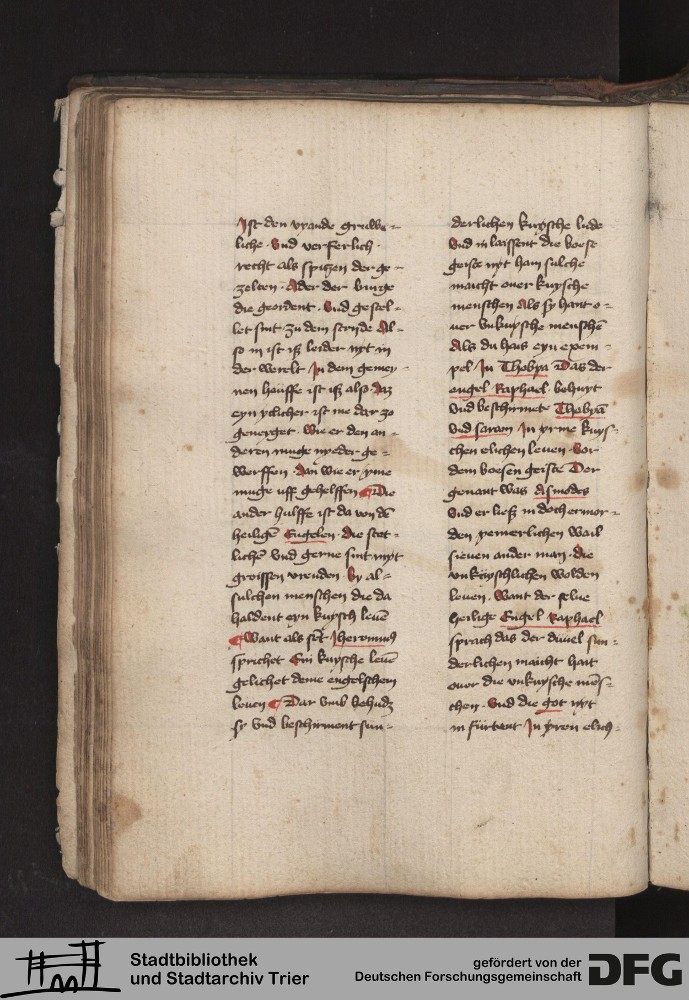 Ist den vyande gruwe -
liche · Vnd verferlich ·
recht als spitzen der ge -
zelten · Ader der burge
die geordent · Vnd gestel -
let sint · zu dem stryde Al -
so in ist iß leider nyt in
der werelt In dem gemey -
nen houffe ist iß also · daz
eyn yclicher ist me dar zo
geneyget · wie er den an -
deren muge nyeder ge -
werffen · dan wie er yme
muge uff gehelffen Die
ander hulffe ist da von dē
heiligē Engelen · die stet -
lichē vnd gerne sint myt
groissen vreuden · by al -
sulchen menschen die da
haldent eyn kuysch leuē
Want als sct Jheronimus
sprichet Ein kuysche leuē
gelichet deme engelschem
leuen Dar vmb behudz
sy vnd beschirment sun -
derlichen kuysche lude
Vnd in laissent die boese
geiste nyt hain sulche
maicht ouer kuysche
menschen Als sy hant o -
uer vnkuysche menschē
Als du hais eyn exem -
pel In Thobya Das der
engel Raphael · behuyt
vnd beschirmete Thobyā
vnd saram In yrme kuys -
chen elichen leuen · vor
dem boesen geiste Der
genant was Asmodes
vnd er ließ in doch ermor -
den yemerlichen wail
sieuen ander man · die
vnkuyschlichen wolden
leuen · Want der selue
heilige Engel Raphael
sprach das der duuel sun -
derlichen maicht hait
ouer die vnkuysche mēs -
chen · Vnd die got nyt
in fürtent In yren elich -
Stadtbibliothek
und Stadtarchiv Trier
gefördert von der
Deutschen Forschungsgemeinschaft
DFG